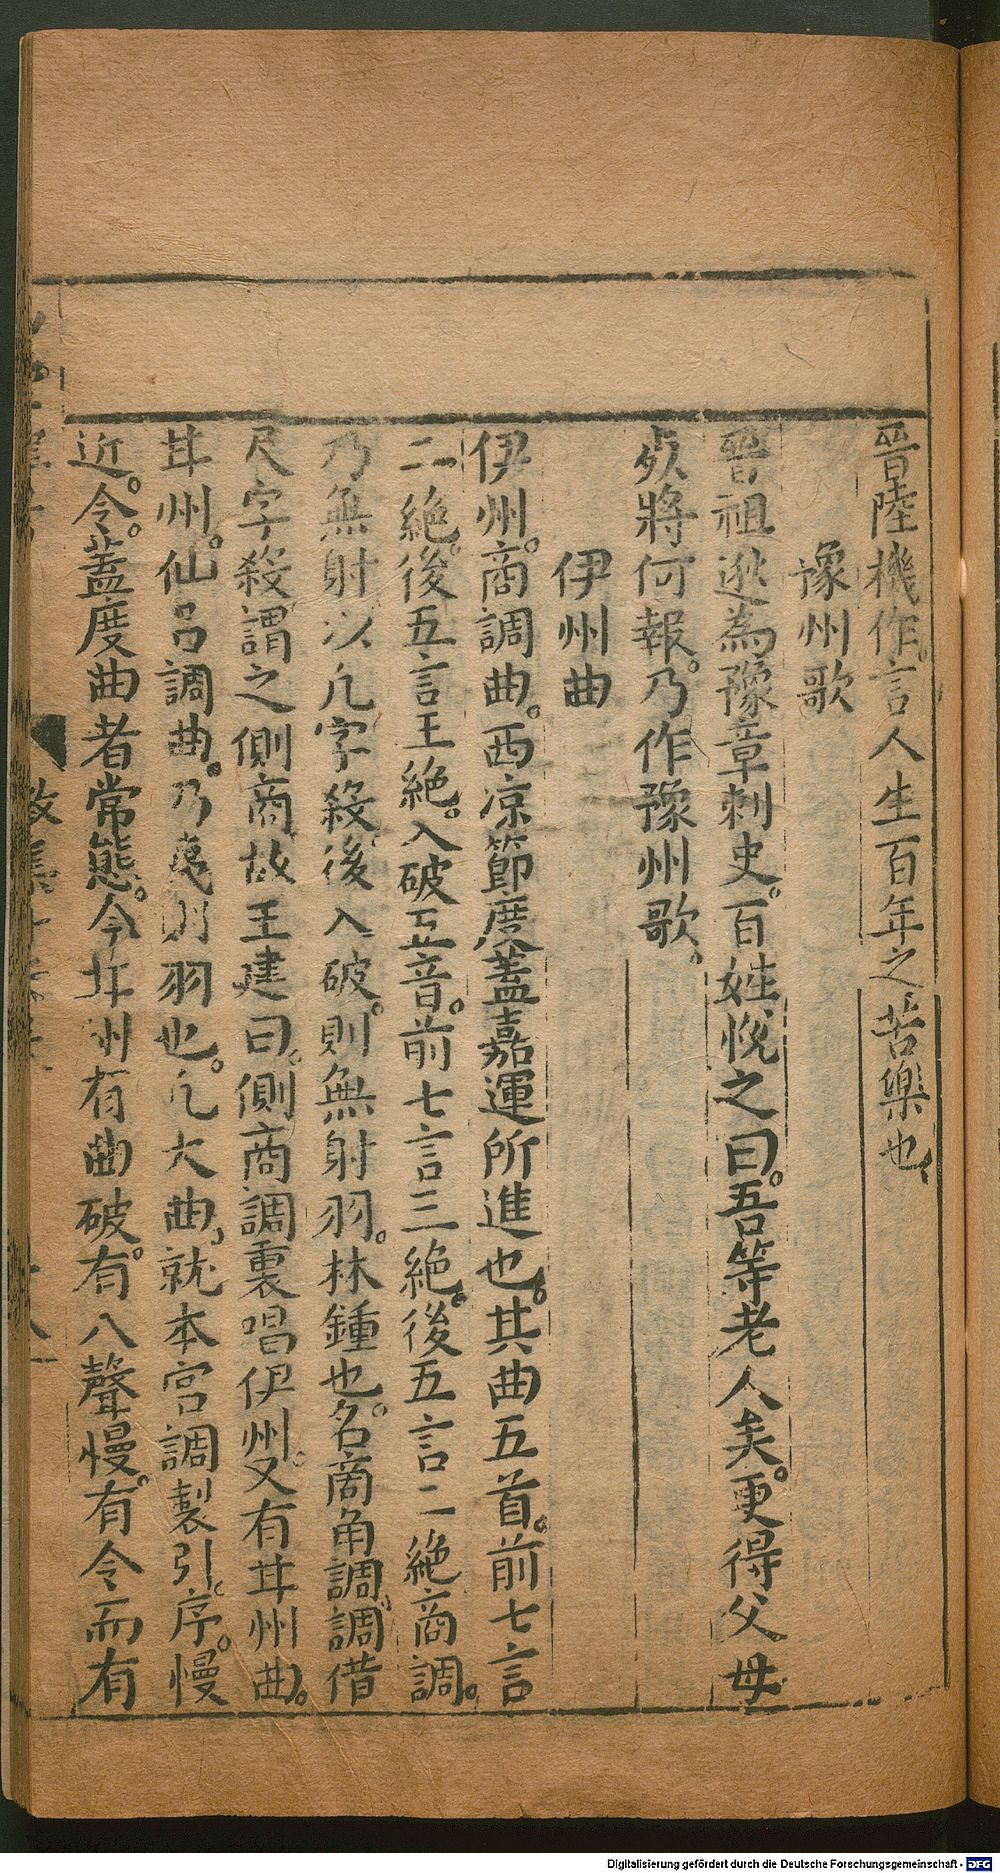 晉陸機作。言人生百年之苦樂也
豫州歌
晉祖逖為豫章刺史。百姓悅之曰。吾等老人矣。更得父母
死將何報。乃作豫州歌。
伊州曲
伊州。商調曲。西凉節度蓋嘉運所進也。其曲五首。前七言
二絶。後五言王絶。入破五音。前七言三絶。後五言二絶商調。
乃無射以凢字殺後入破。則無射羽。林鍾也。名商角調。調借
尺字殺謂之側商故王建曰。側商調裏唱伊州。又有甘州曲。
甘州。仙呂調曲。乃夷則羽也。凢大曲。就本宫調製引。序。慢
近。令。蓋度曲者常態。今甘州有曲破。有八聲慢。有令而有
Digitalisierung gefördert durch die Deutsche Forschungsgemeinschaft - DFG